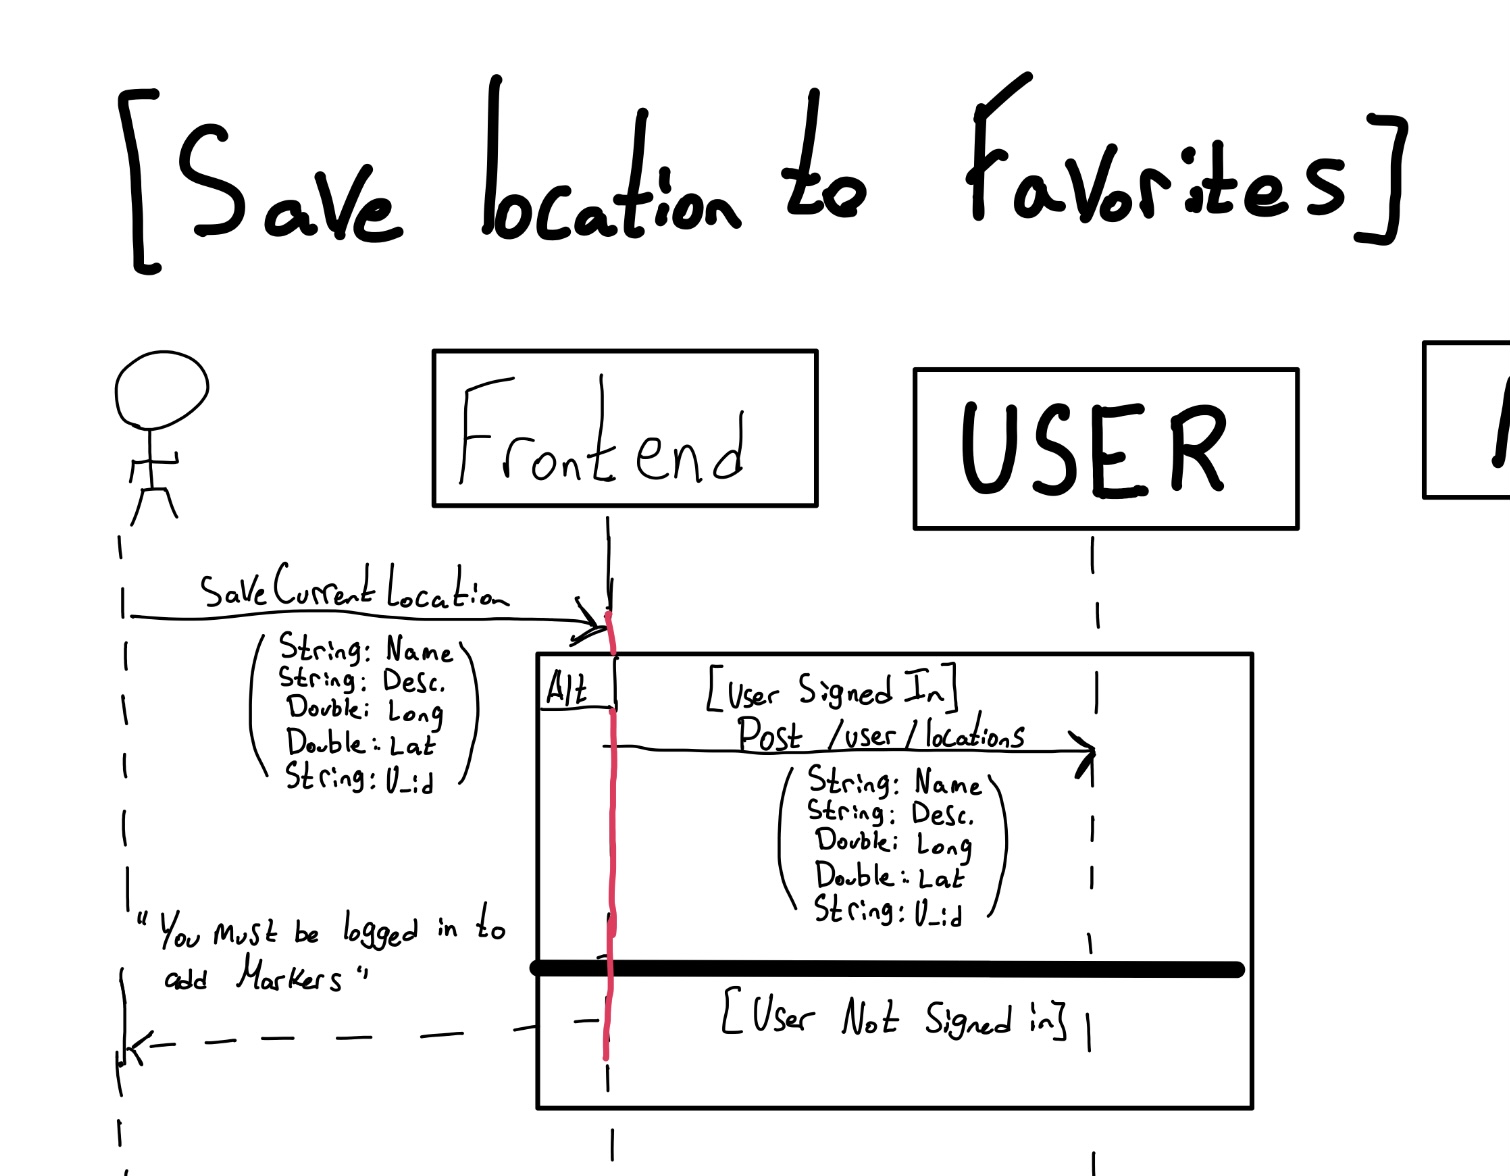 [Save location to Favorites]
Frontend
USER
SaveCurrentLocation
String: Name
String: Desc.
Double: Long
Double: Lat
String: U_id
Alt
[User Signed In]
Post /user/locations
String: Name
String: Desc.
Double: Long
Double: Lat
String: U_id
"You must be logged in to
add Markers"
[User Not Signed in]